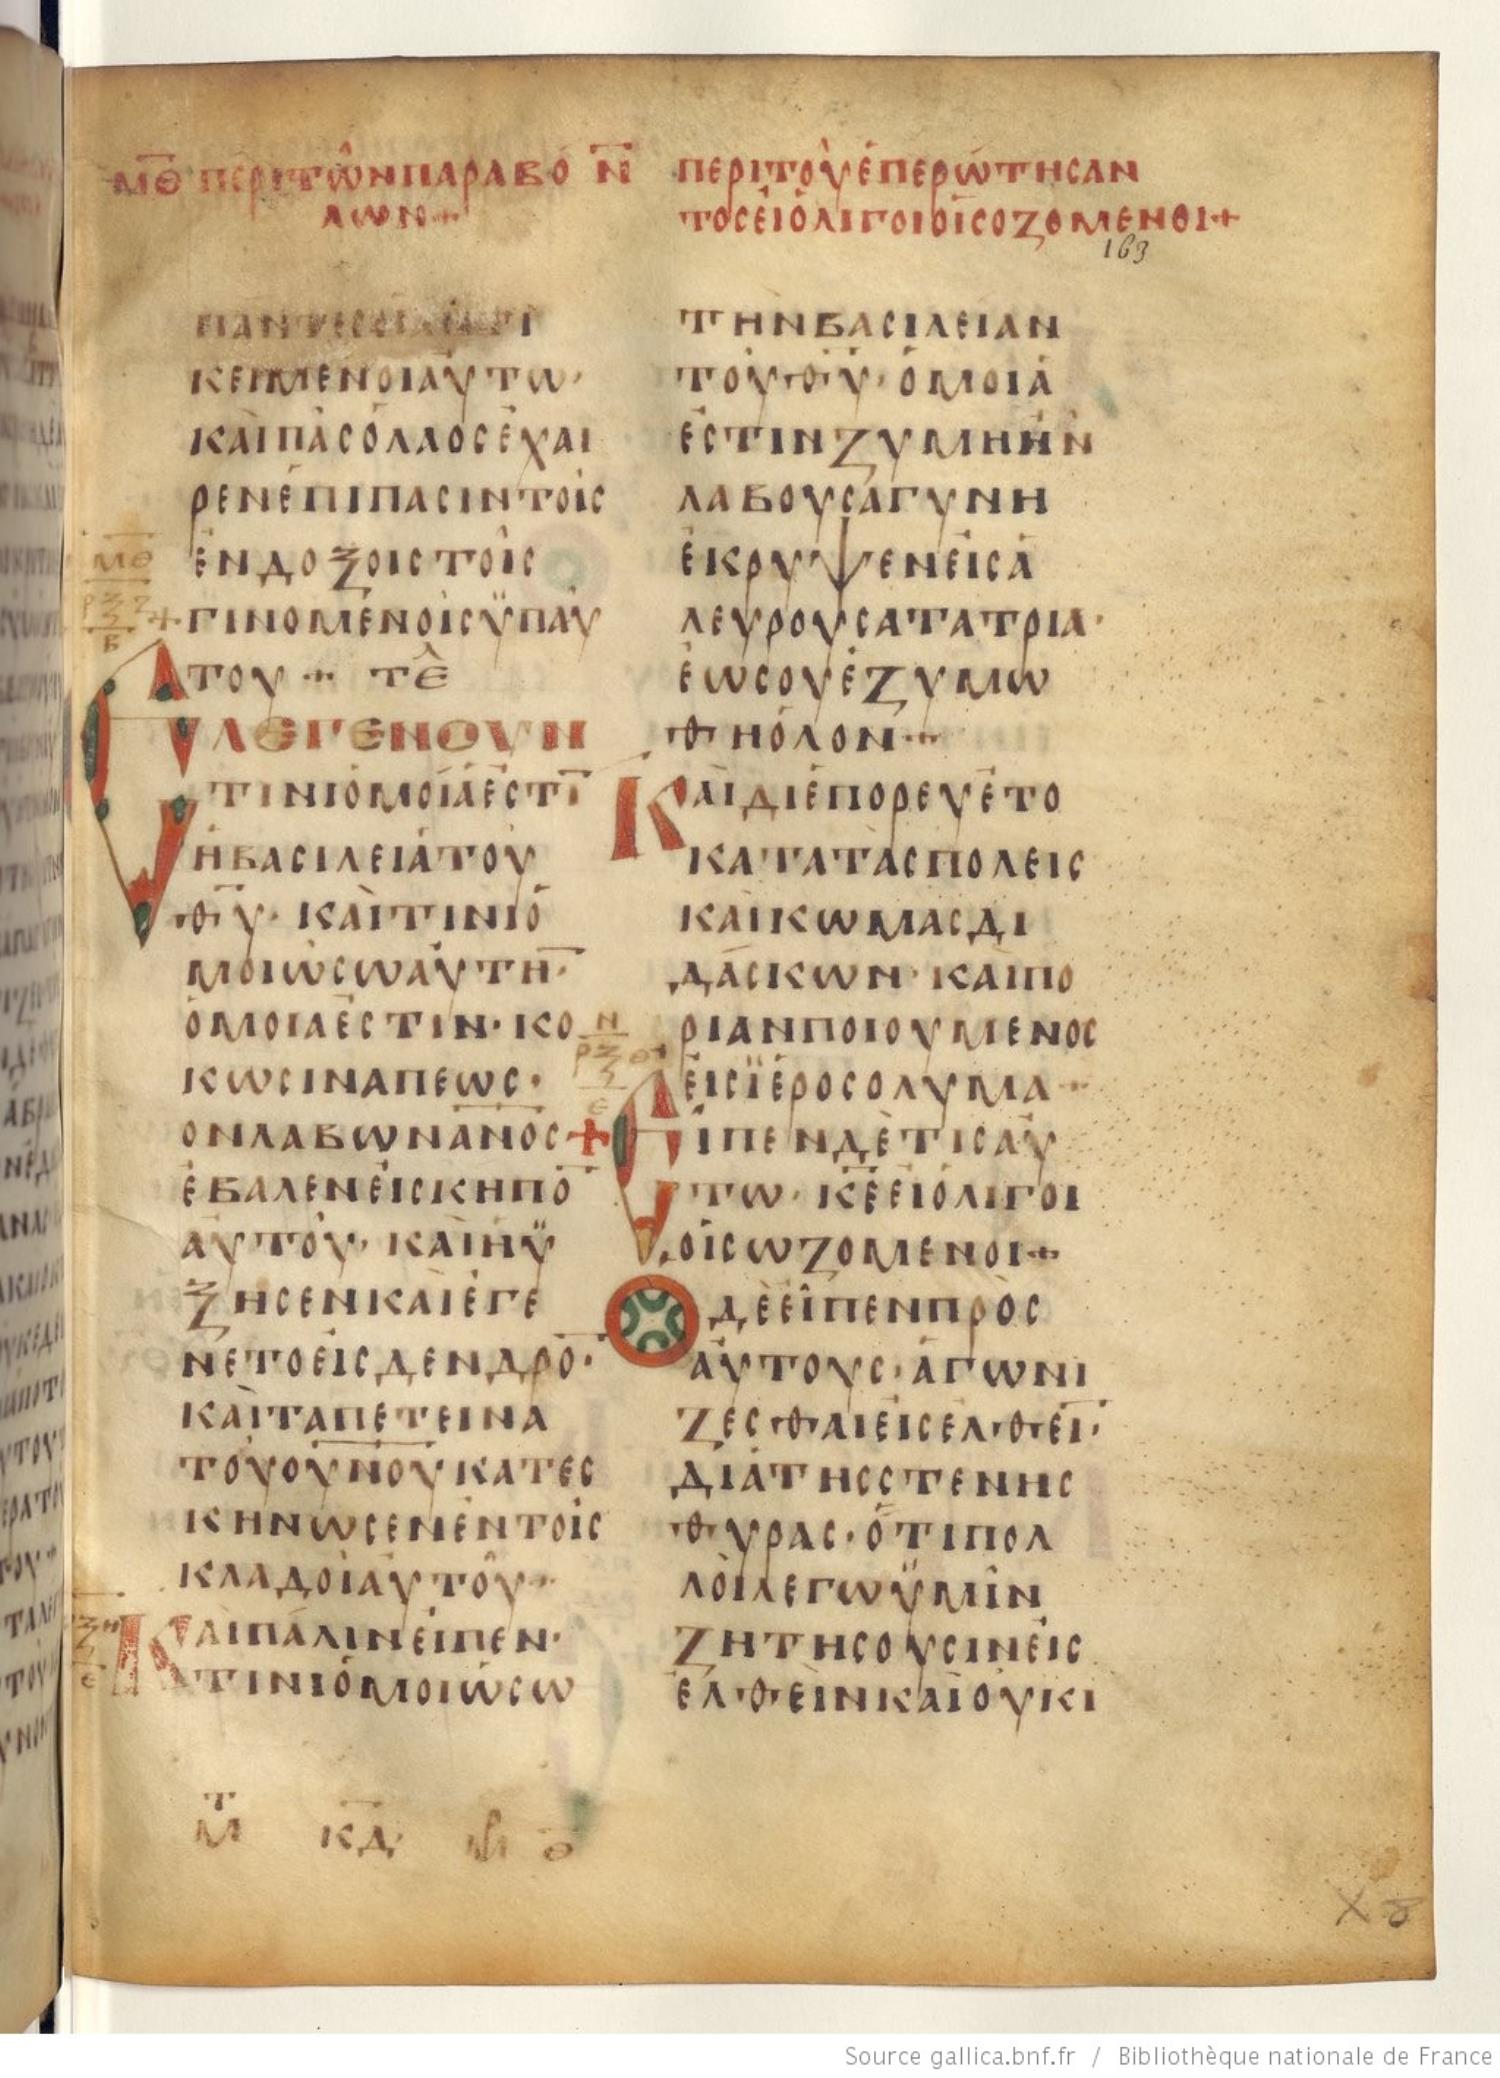 ΜΘ ΠΕΡΙΤΩΝΠΑΡΑΒΟ
ΛΩΝ+
Ν ΠΕΡΙΤΟΥΕΠΕΡΩΤΗСΑΝ
ΤΟСΕΙΟΛΙΓΟΙΟΙСΟΖΟΜΕΝΟΙ+
163
ΚΕΙΜΕΝΟΙΑΥΤΩ·
ΚΑΙΠΑСΟΛΑΟСΕΧΑΙ
ΡΕΝΕΠΙΠΑСΙΝΤΟΙС
ΕΝΔΟΞΟΙСΤΟΙС
ΓΙΝΟΜΕΝΟΙСΫΠΑΥ
ΤΟΥ+ ΤΕ
ΕΛΕΓΕΝΟΥΝ
ΤΙΝΙΟΜΟΙΑΕСΤΙ̅
ΗΒΑСΙΛΕΙΑΤΟΥ
Θ̅Υ̅· ΚΑΙΤΙΝΙΟ
ΜΟΙΩСΩΑΥΤΗ̅·
ΟΜΟΙΑΕСΤΙΝ·ΚΟ
ΚΩСΙΝΑΠΕΩС·
ΟΝΛΑΒΩΝΑ̅Ν̅Ο̅С̅
ΕΒΑΛΕΝΕΙСΚΗΠΟ̅
ΑΥΤΟΥ· ΚΑΙΗΫ
ΞΗСΕΝΚΑΙΕΓΕ
ΝΕΤΟΕΙСΔΕΝΔΡΟ̅·
ΚΑΙΤΑΠΕΤΕΙΝΑ
ΤΟΥΟ̅Υ̅Ν̅Ο̅Υ̅ΚΑΤΕС
ΚΗΝΩСΕΝΕΝΤΟΙС
ΚΛΑΔΟΙΑΥΤΟΥ·
ΚΑΙΠΑΛΙΝΕΙΠΕΝ·
ΤΙΝΙΟΜΟΙΩСΩ
ΤΗΝΒΑСΙΛΕΙΑΝ
ΤΟΥΘ̅Υ̅· ΟΜΟΙΑ
ΕСΤΙΝΖΥΜΗΗΝ
ΛΑΒΟΥСΑΓΥΝΗ
ΕΚΡΥΨΕΝΕΙСΑ
ΛΕΥΡΟΥСΑΤΑΤΡΙΑ·
ΕΩСΟΥΕΖΥΜΩ
ΘΗΟΛΟΝ+
ΚΑΙΔΙΕΠΟΡΕΥΕΤΟ
ΚΑΤΑΤΑСΠΟΛΕΙС
ΚΑΙΚΩΜΑСΔΙ
ΔΑСΚΩΝ· ΚΑΙΠΟ
ΡΙΑΝΠΟΙΟΥΜΕΝΟС
ΕΙСΪΕΡΟСΟΛΥΜΑ·
+ΕΙΠΕΝΔΕΤΙСΑΥ
ΤΩ· Κ̅Ε̅ΕΙΟΛΙΓΟΙ
ΟΙСΩΖΟΜΕΝΟΙ+
ΟΔΕΕΙΠΕΝΠΡΟС
ΑΥΤΟΥС·ΑΓΩΝΙ
ΖΕСΘΑΙΕΙСΕΛΘΕΙ̅·
ΔΙΑΤΗССΤΕΝΗС
ΘΥΡΑС·ΟΤΙΠΟΛ
ΛΟΙΛΕΓΩΫΜΙΝ
ΖΗΤΗСΟΥСΙΝΕΙС
ΕΛΘΕΙΝΚΑΙΟΥΚΙ
ΚΔ
Source gallica.bnf.fr / Bibliothèque nationale de France